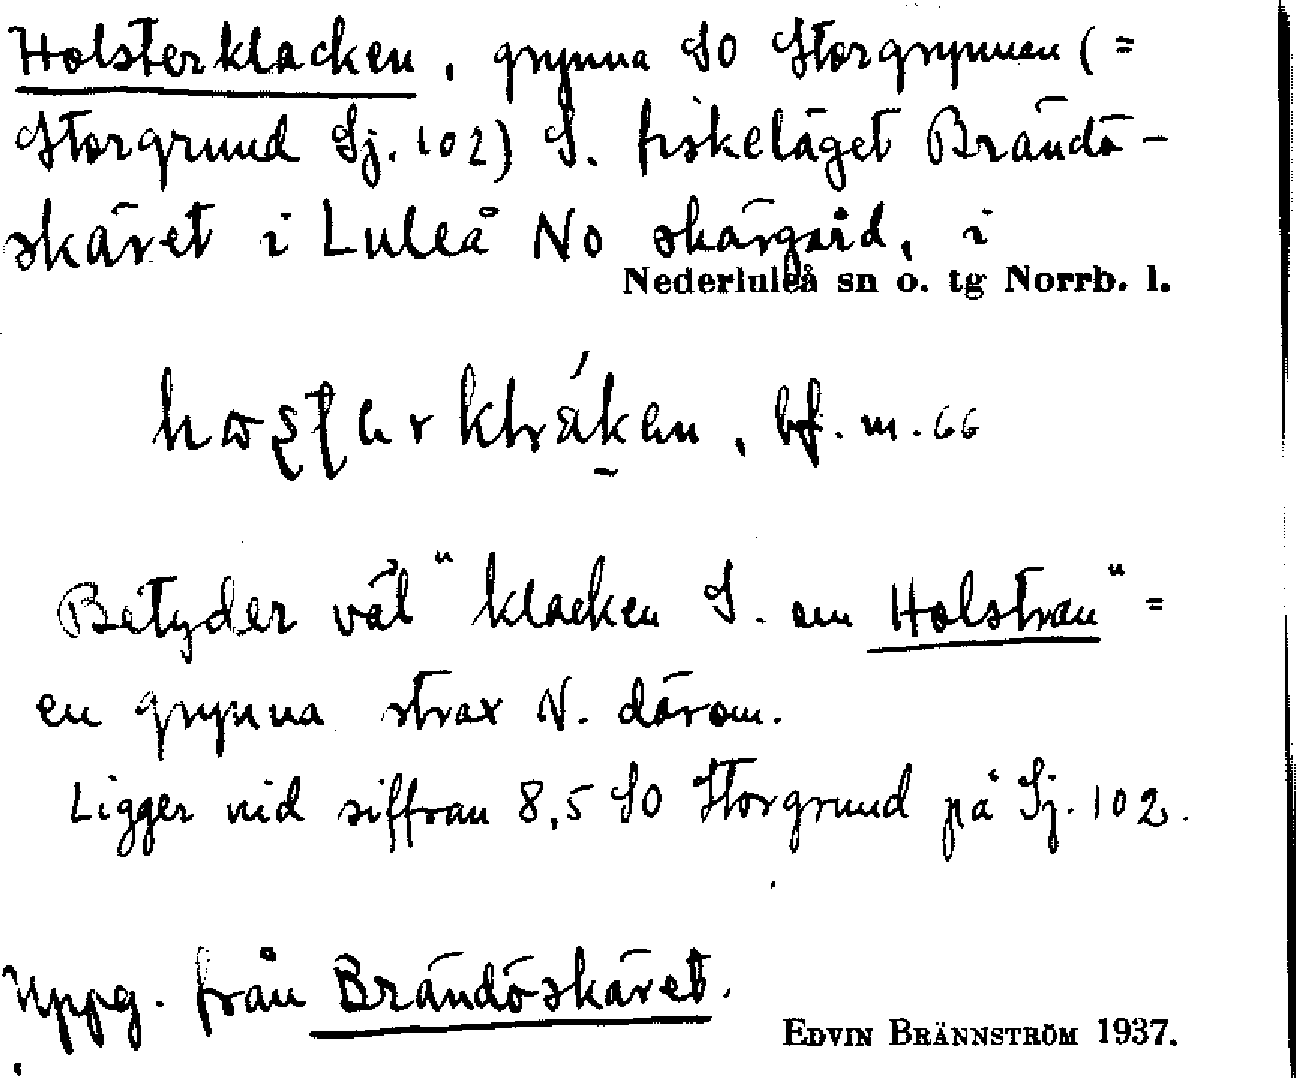 Holsterklacken, grynna SO Storgrynnan (=
Storgrund Sj. 102) S. fiskeläget Brändö-
skäret i Luleå No skärgård, i
Nederluleå sn o. tg Norrb. l.
bf. m. 66
Betyder väl "klacken S. om Holstran" =
en grynna strax N. därom.
Ligger vid siffran 8,5 SO Storgrund på Sj. 102.
Uppg. från Brändöskäret.
EDVIN BRÄNNSTRÖM 1937.